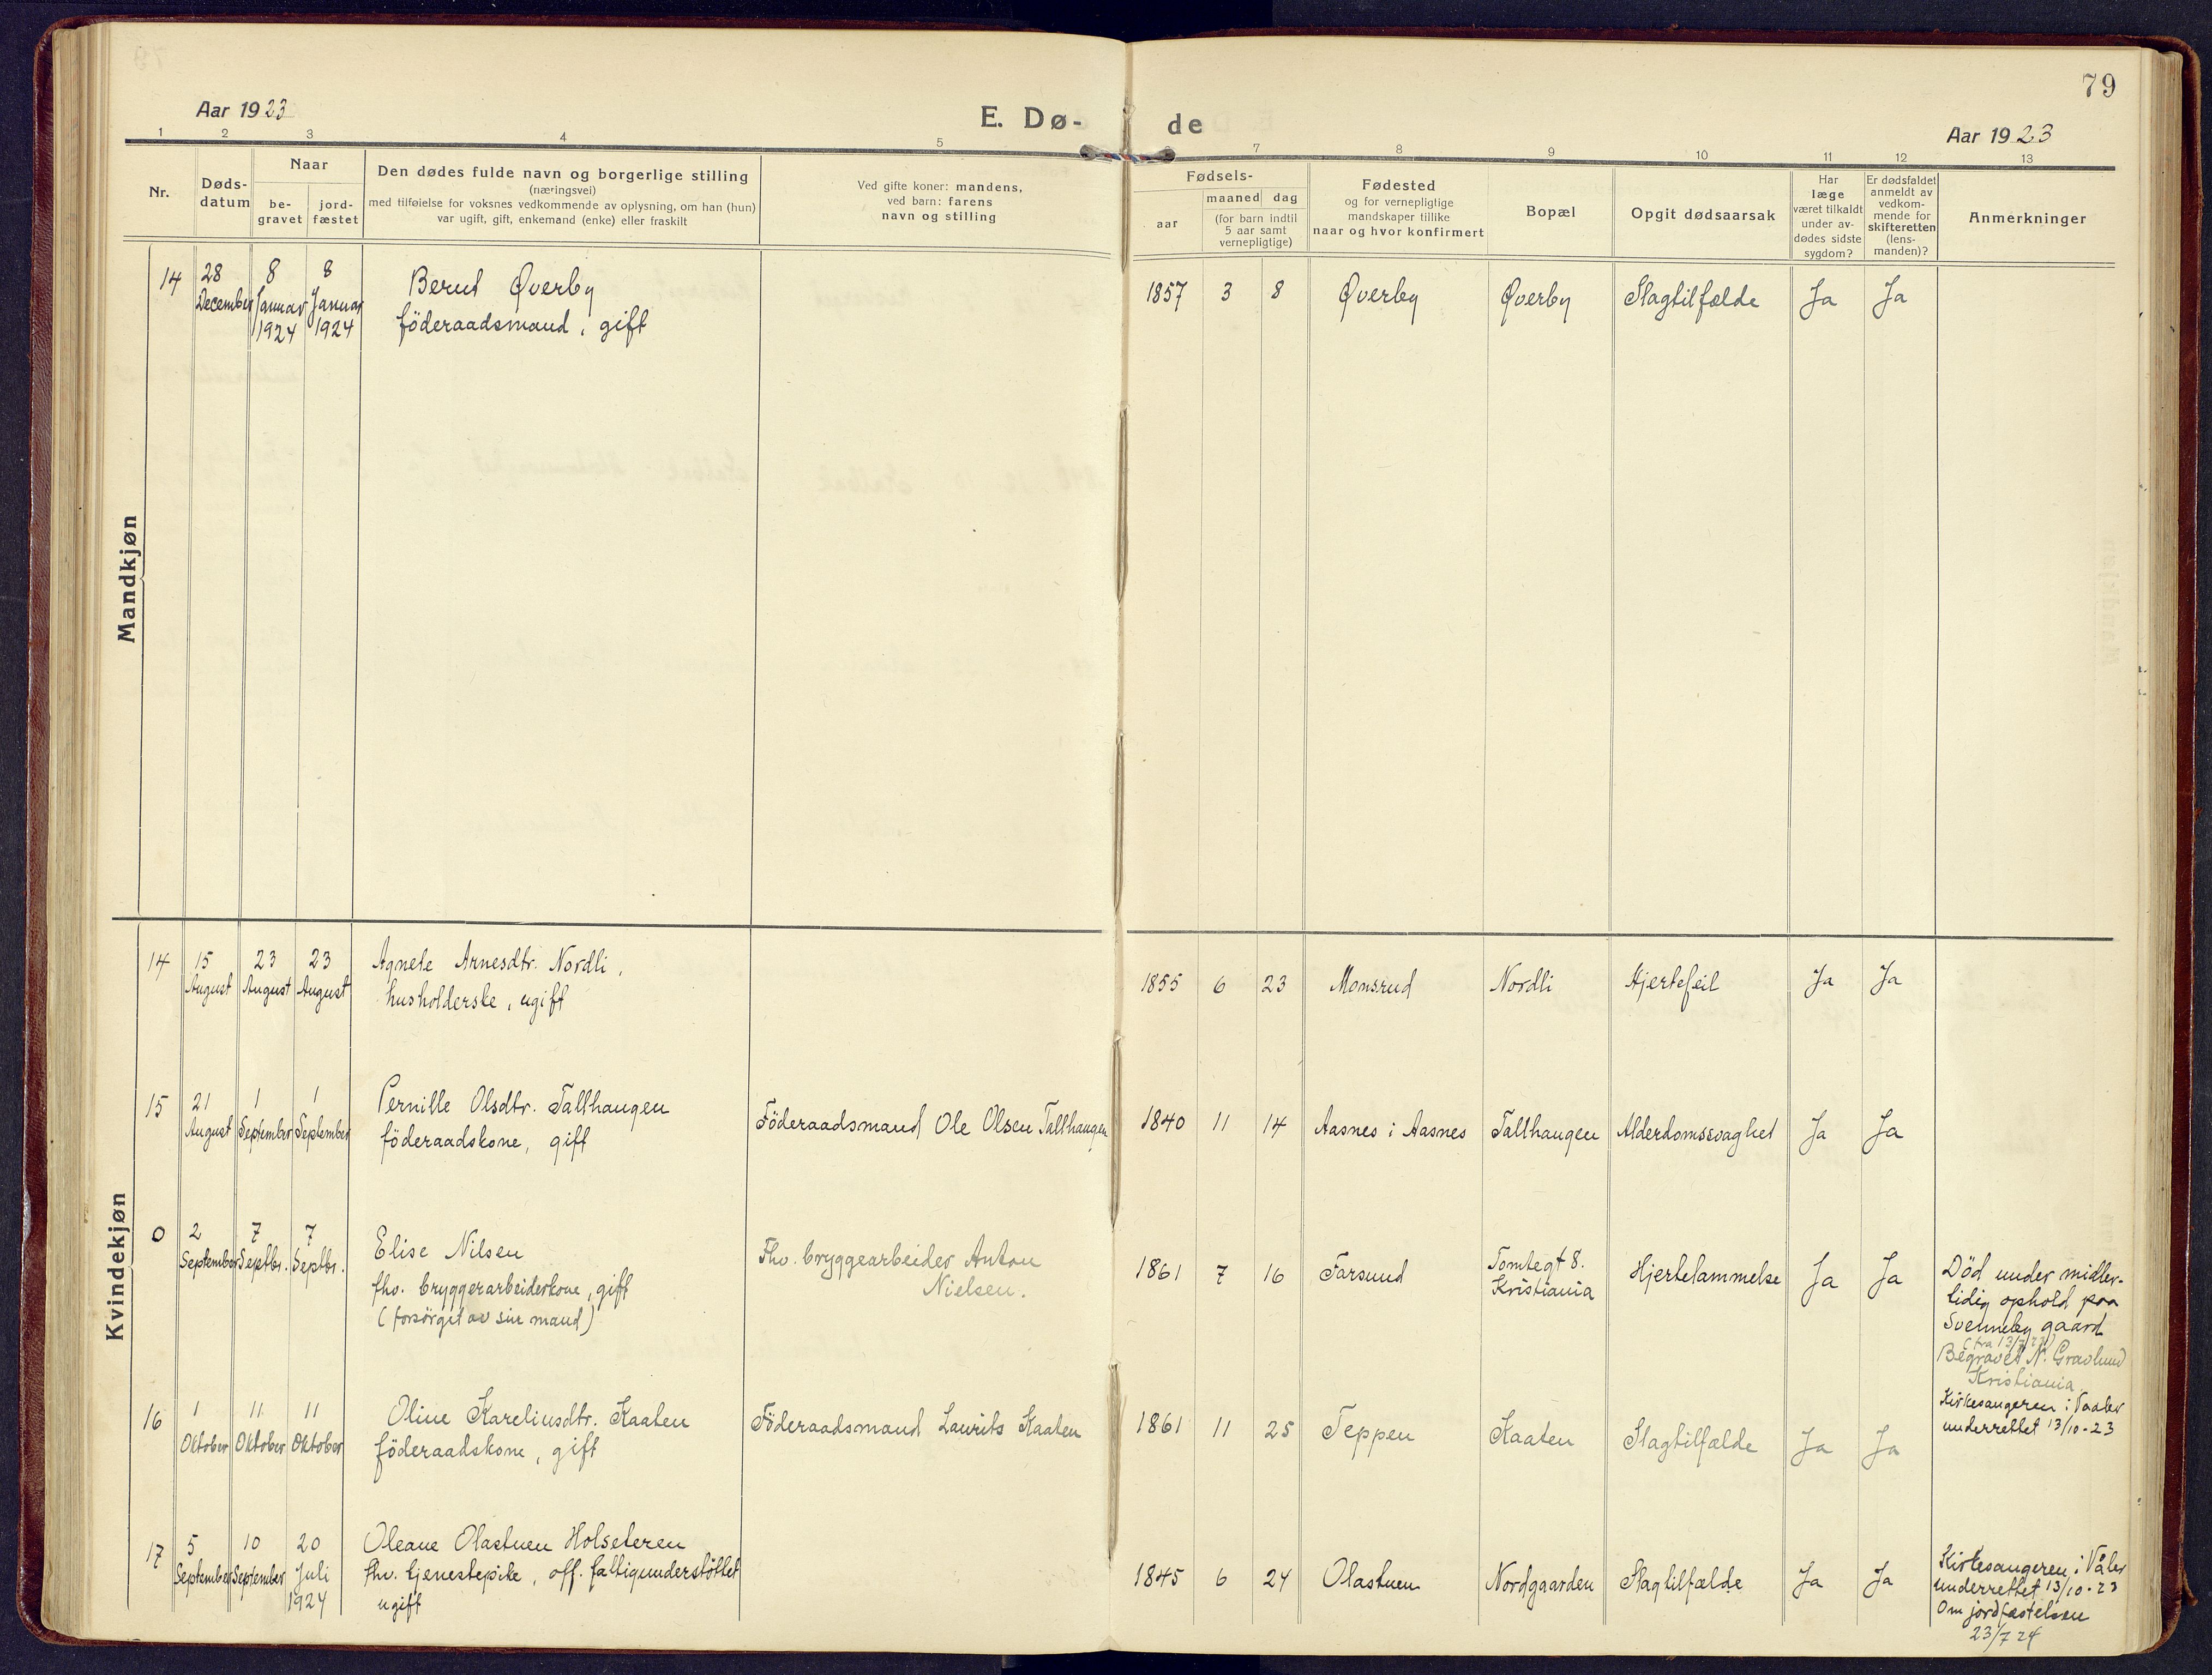 79
Aar 1923
E. Dø-
de
Aar 1923
1 2 3 4 5 7 8 9 10 11 12 13
Nr.
Døds-
datum
Naar
be-
gravet
jord-
fæstet
Den dødes fulde navn og borgerlige stilling
(næringsvei)
med tilføielse for voksnes vedkommende av oplysning, om han (hun)
var ugift, gift, enkemand (enke) eller fraskilt
Ved gifte koner: mandens,
ved barn: farens
navn og stilling
Fødsels-
aar
maaned dag
(for barn indtil
5 aar samt
vernepligtige)
Fødested
og for vernepligtige
mandskaper tillike
naar og hvor konfirmert
Bopæl
Opgit dødsaarsak
Har
læge
været tilkaldt
under av-
dødes sidste
sygdom?
Er dødsfaldet
anmeldt av
vedkom-
mende for
skifteretten
(lens-
manden)?
Anmerkninger
Mandkjøn
14
28
December
8
Januar
1924
8
Januar
1924
Bernt Øverby
föderaadsmand, gift
1857 3 8 Øverby Øverby Slagtilfælde Ja Ja
Kvindekjøn
14
15
August
23
August
23
August
Agnete Arnesdtr. Nordli,
husholderske, ugift
1855 6 23 Monsrud Nordli Hjertefeil Ja Ja
15
21
August
1
September
1
September
Pernille Olsdtr. Tallhaugen
föderaadskone, gift
Föderaadsmand Ole Olsen Tallhaugen
1840 11 14 Aasnes i Aasnes Tallhaugen Alderdomssvaghet Ja Ja
0
2
September
7
Septbr.
7
Septbr.
Elise Nilsen
fhv. bryggerarbeiderkone, gift
(forsörget av sin mand)
Fhv. bryggearbeider Anton
Nielsen.
1861 7 16 Farsund
Tomtegt 8.
Kristiania
Hjertelammelse Ja Ja
Död under midler-
tidig ophold paa
Svenneby gaard
(fra 13/7 23)
Begravet N. Gravlund
Kristiania
16
1
Oktober
11
Oktober
11
Oktober
Oline Kareliusdtr. Kaaten
föderaadskone, gift
Föderaadsmand Laurits Kaaten
1861 11 25 Teppen Kaaten Slagtilfælde Ja Ja
Kirkesangeren i Vaaler
underrettet 13/10-23
17
5
September
10
September
20
Juli
1924
Oleane Olastuen Holseteren
fhv. tjenestepike, off. fattigunderstöttet
ugift
1845 6 24 Olastuen Nordgaarden Slagtilfælde Ja Ja
Kirkesangeren i Våler
underrettet 13/10-23
Om jordfæstelsen
23/7 24